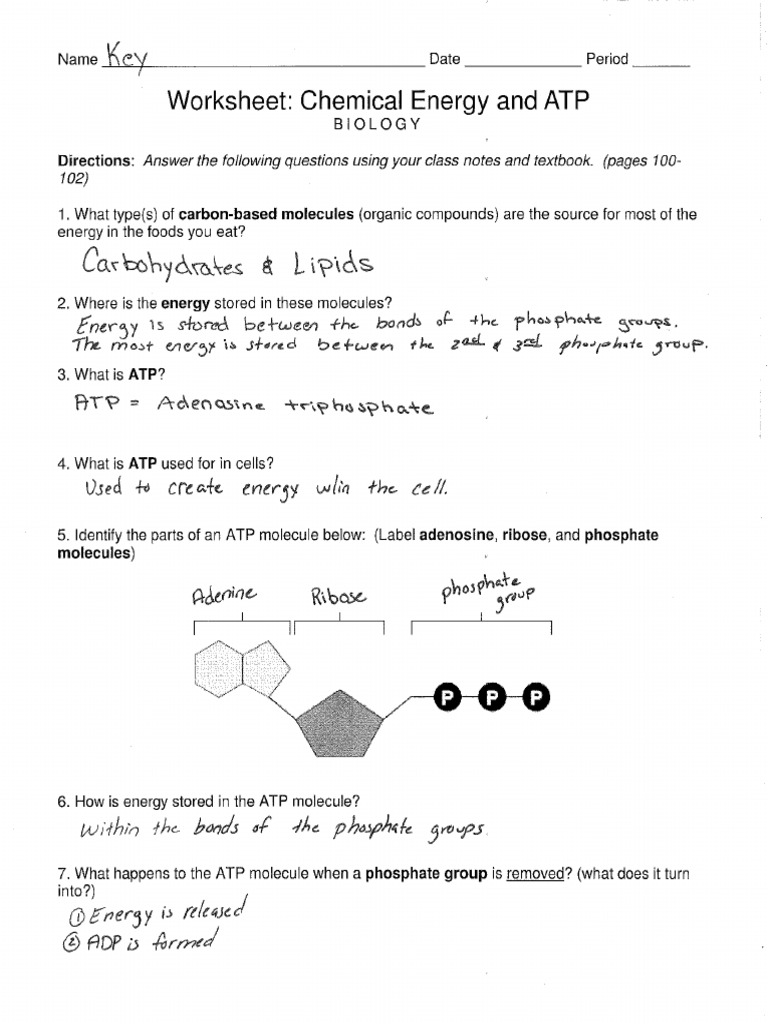 Name Key Date Period
Worksheet: Chemical Energy and ATP
BIOLOGY
Directions: Answer the following questions using your class notes and textbook. (pages 100-
102)
1. What type(s) of carbon-based molecules (organic compounds) are the source for most of the
energy in the foods you eat?
Carbohydrates & Lipids
2. Where is the energy stored in these molecules?
Energy is stored between the bonds of the phosphate groups.
The most energy is stored between the 2nd & 3rd phosphate group.
3. What is ATP?
ATP = Adenosine triphosphate
4. What is ATP used for in cells?
Used to create energy w/in the cell.
5. Identify the parts of an ATP molecule below: (Label adenosine, ribose, and phosphate
molecules)
Adenine Ribose phosphate
group
P P P
6. How is energy stored in the ATP molecule?
Within the bonds of the phosphate groups.
7. What happens to the ATP molecule when a phosphate group is removed? (what does it turn
into?)
① Energy is released
② ADP is formed